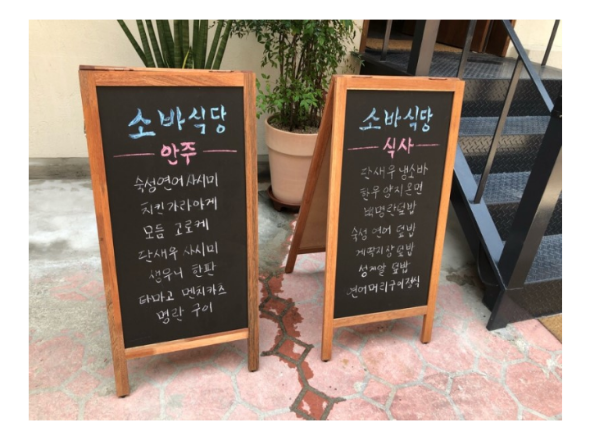 소바식당
안주
숙성연어 사시미
치킨 가라아게
모듬 고로케
단새우 사시미
생우니 한판
타마고 멘치카츠
명란 구이
소바식당
식사
단새우 냉소바
한우 양지온면
백명란덮밥
숙성 연어 덮밥
게딱지장덮밥
성게알 덮밥
연어머리구이정식